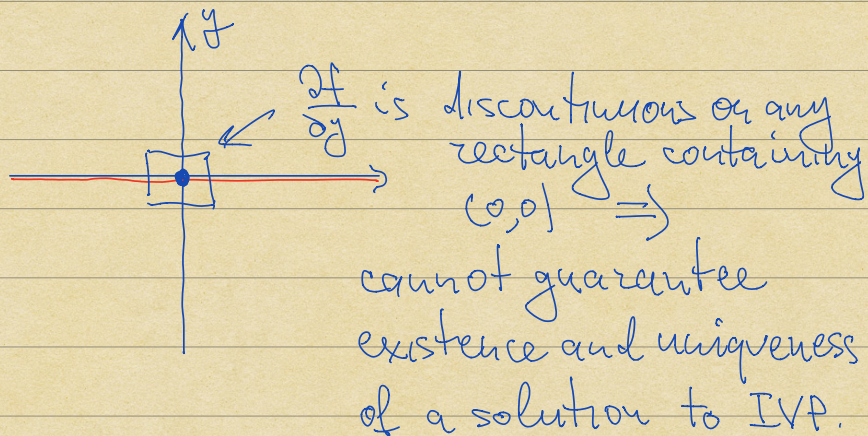 y
∂f/∂y is discontinuous on any
rectangle containing
(0,0) ⇒
cannot guarantee
existence and uniqueness
of a solution to IVP.